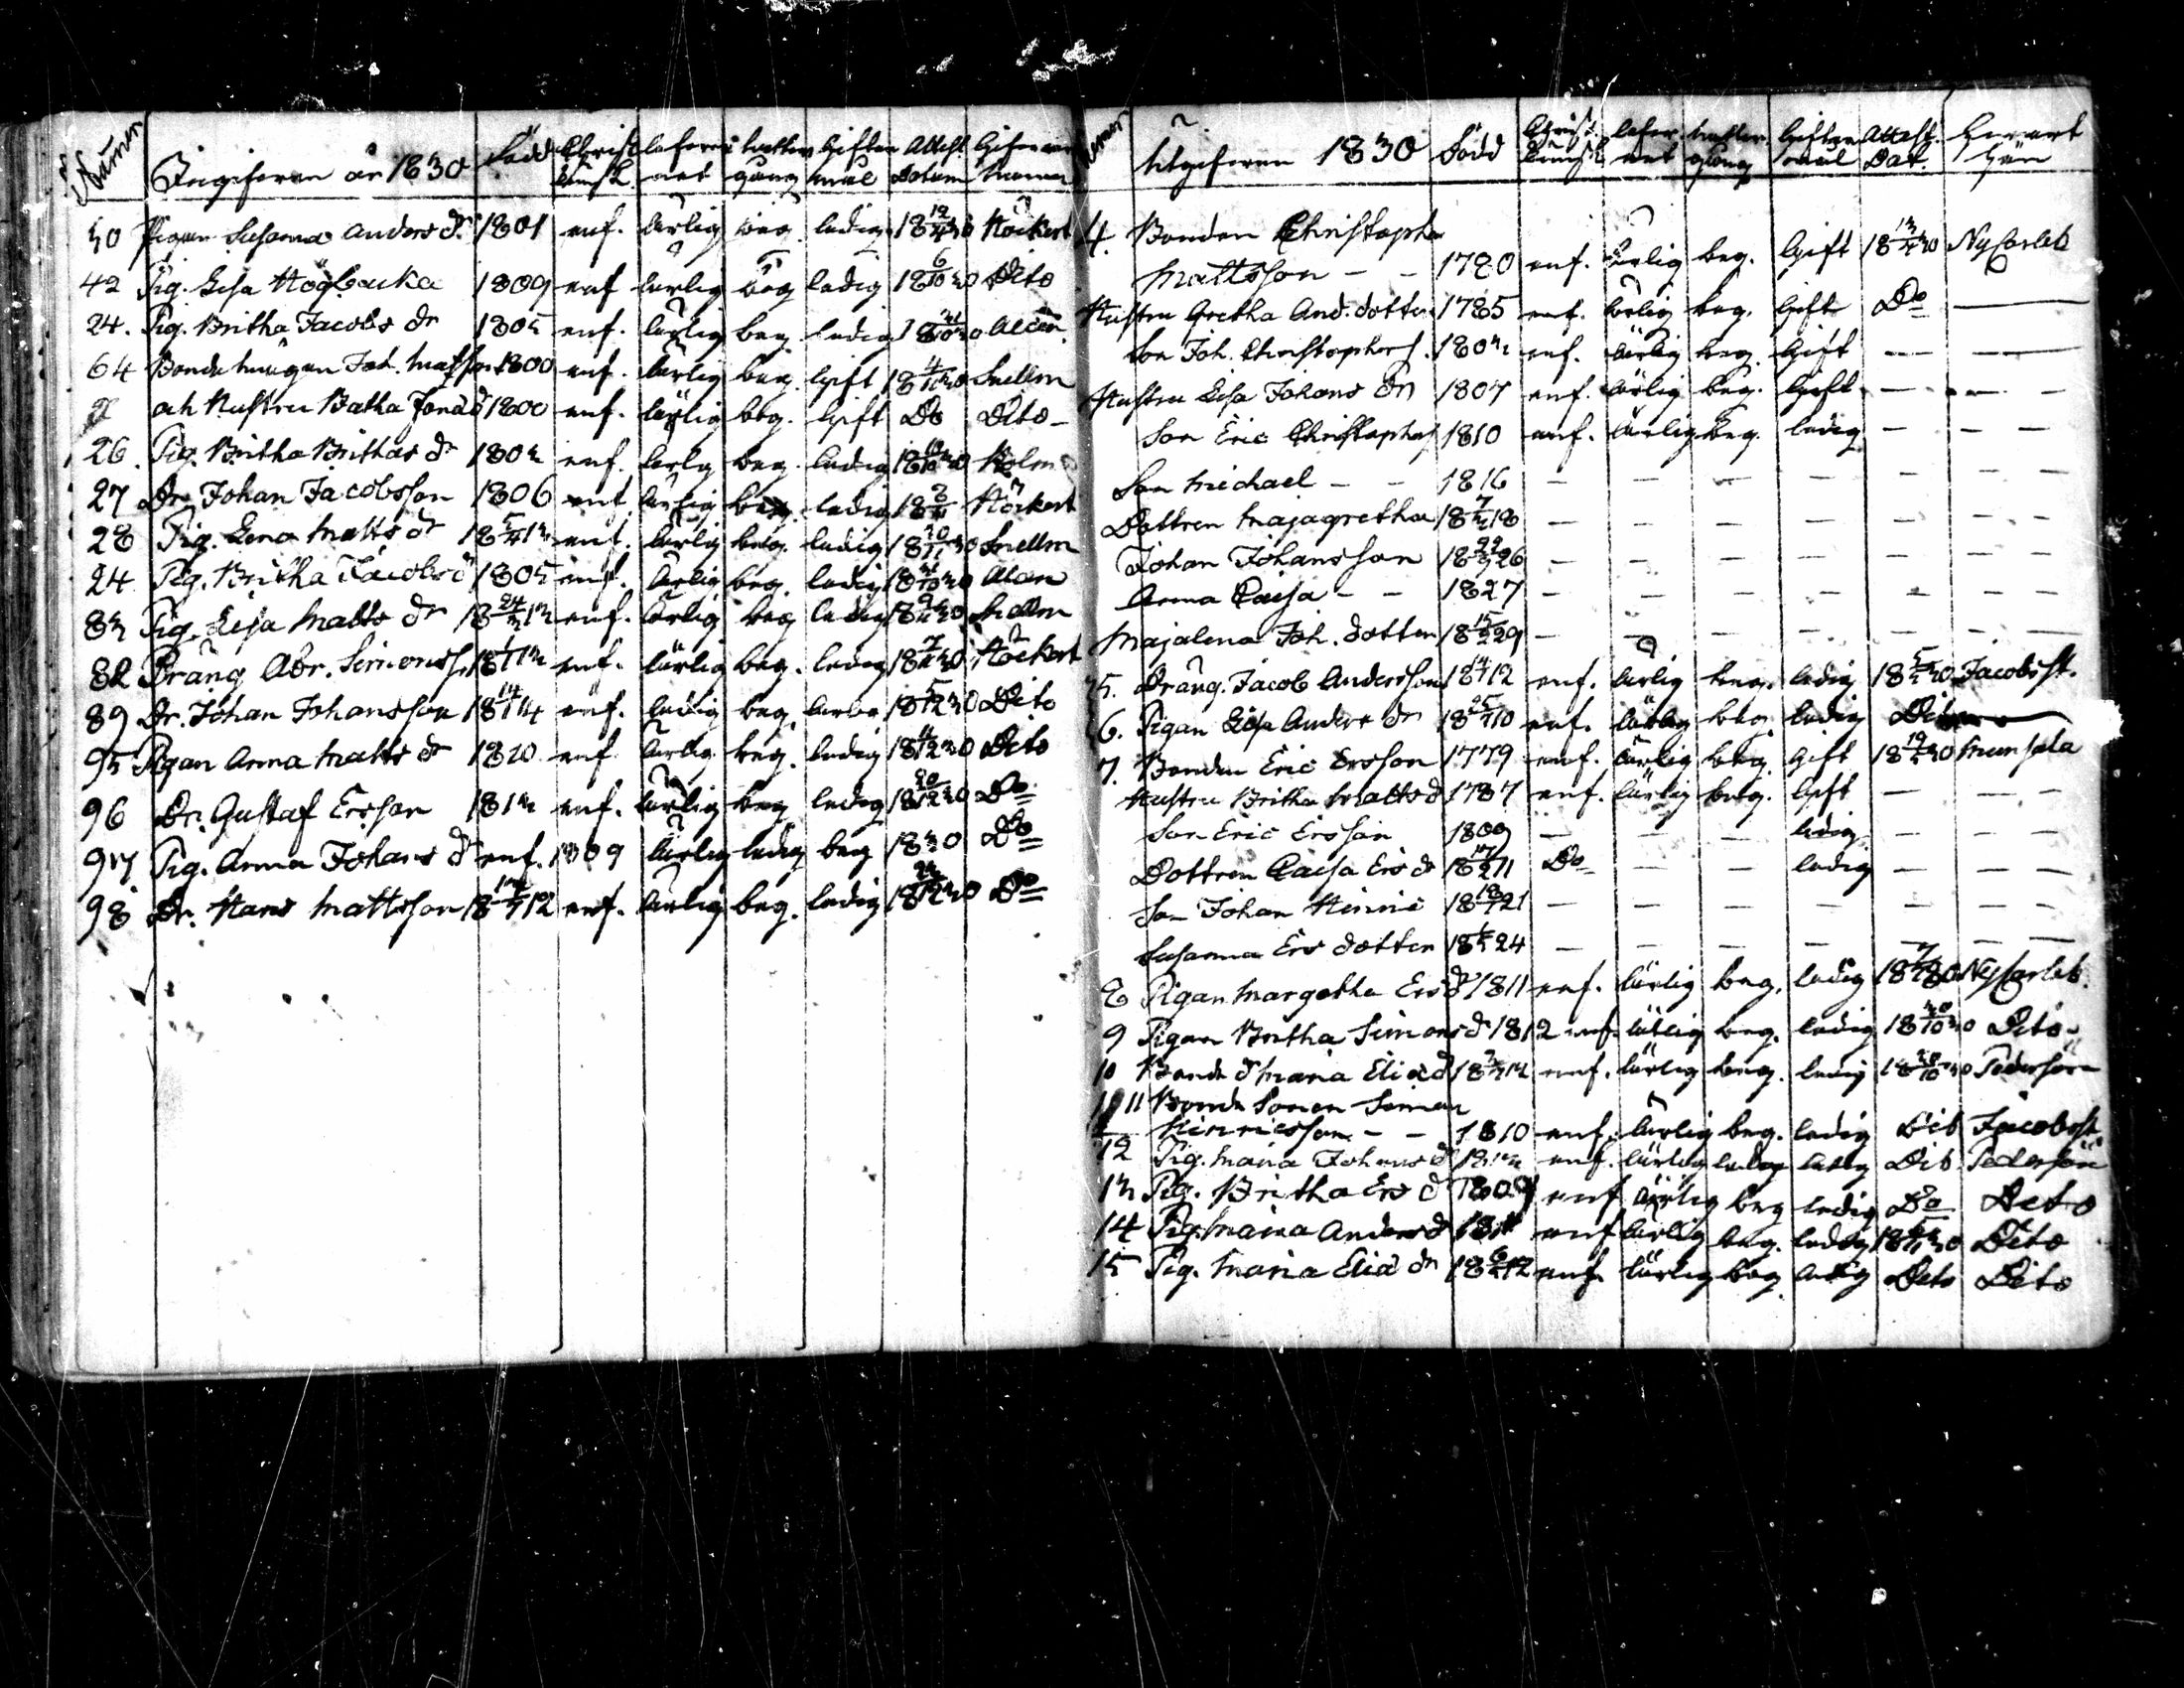 Numer Ingifne år 1830 Född Christ. kunsk. lefver net nattv. gång Giftermål Attest. Datum Gifvarens namn
Pigan Susanna Anders dr 1801 enf. ärlig beg. ledig 18 12/4 30 Höckert
42 Pig. Lisa Högbacka 1809 enf ärlig beg ledig 18 6/10 30 Dito
24. Pig. Britha Jacobs dr 1805 enf. ärlig beg. ledig Alcen
64 Bonde mågen Joh. Matsson 1800 enf. ärlig beg. Gift 18 4/11 30 Snellm
och Hustru Jona d 1800 enf. ärlig beg. Gift Do Dito
26. Pig. Britha Brithas dr 1803 enf. ärlig beg. ledig Holm
27 Dr. Johan Jacobsson 1806 enf. ärlig beg. ledig Höckert
28 Pig. Lena Matts dr 18 5/4 13 enf. ärlig beg. ledig 18 20/11 30 Snellm
24 Pig. Britha Jacobs d 1805 enf. ärlig beg. ledig Alcen
83 Pig. Lisa Matts dr 18 24/3 13 enf. ärlig beg ledig 18 9/11 30 Snellm
82 Dräng Abr. Simonss. enf. ärlig beg. ledig 18 7/11 30 Höckert
89 Dr. Johan Johansson 18 14/1 14 enf. ledig beg. 18 5/12 30 Dito
95 Pigan Anna Matts d 1810 enf. ärlig beg. ledig 18 11/12 30 Dito
96 Dr. Gustaf Ersson 1813 enf. ärlig beg ledig 18 20/12 30 Do
97 Pig. Anna Johans d enf. 1809 ärlig ledig beg 1830 Do
98 Dr. Hans Mattsson 12 enf. ärlig beg. ledig 30 Do
Utgifven 1830 Född Christ. kunsk. lefver net nattv. gång Giftermål Attest. Dat. Hvart hän
4. Bonden Christopher
Mattsson - - 1780 enf. ärlig beg. Gift 18 13/4 30 NyCarleb
Hustru Gretha And. dotter 1785 enf. ärlig beg. Gift Do —
Son Joh. Christophers. 1803 enf. ärlig beg. Gift — —
Hustru Lisa Johans dr 1807 enf. ärlig beg. Gift — —
Son Eric Christophers 1810 enf. ärlig beg. ledig — —
Son Michael - - 1816 — — — — — —
Dottren Majagretha 18 7/3 18 — — — — — —
Johan Johansson 18 22/2 26 — — — — — —
Anna Caisa - - 1827 — — — — — —
Majalena Joh. dotter 18 15/2 29 — — — — — —
5. Dräng. Jacob Andersson 18 14/1 12 enf. ärlig beg. ledig 18 5/5 30 Jacobst.
6. Pigan Lisa Anders dr 18 25/1 10 enf. ärlig beg. ledig Dito
7. Bonden Eric Ersson 1779 enf. ärlig beg. Gift 18 19/5 30 Munsala
Hustru Britha Matts d 1787 enf. ärlig beg. Gift — —
Son Eric Ersson 1809 — — — ledig — —
Dottren Caisa Ers d 18 17/2 11 Do — — ledig — —
Son Johan Hinric 18 18/1 21 — — — — — —
Susanna Ers dotter 24 — — — — — —
8 Pigan Margetha Ers d 1811 enf. ärlig beg. ledig NyCarleb.
9 Pigan Britha Simons d 1812 enf. ärlig beg. ledig 18 30/10 30 Dito
10 Bonde d Maria Elia d enf. ärlig beg. ledig 18 30/10 30 Pedersöre
11 Bonde Sonen Simon
Hinricsson - - 1810 enf. ärlig beg. ledig Dito Jacobst
12 Pig. Maria Johans d 1813 enf. ärlig ledig Dit. Pedersöre
13 Pig. Britha Ers d 1809 enf ärlig beg ledig Do Dito
14 Pig. Maria Anders d enf ärlig beg. ledig Dito
15 Pig. Maria Elia dr 12 enf. ärlig beg ledig Dito Dito